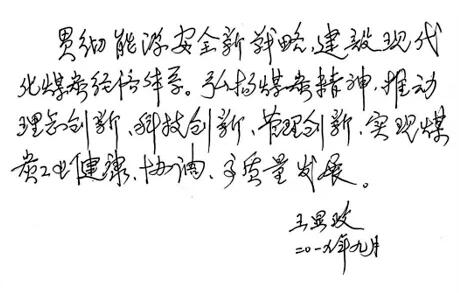 贯彻能源安全新战略,建设现代
化煤炭经济体系。弘扬煤炭精神,推动
理念创新、科技创新、管理创新,实现煤
炭工业健康、协调、高质量发展。
王显政
二〇一九年九月